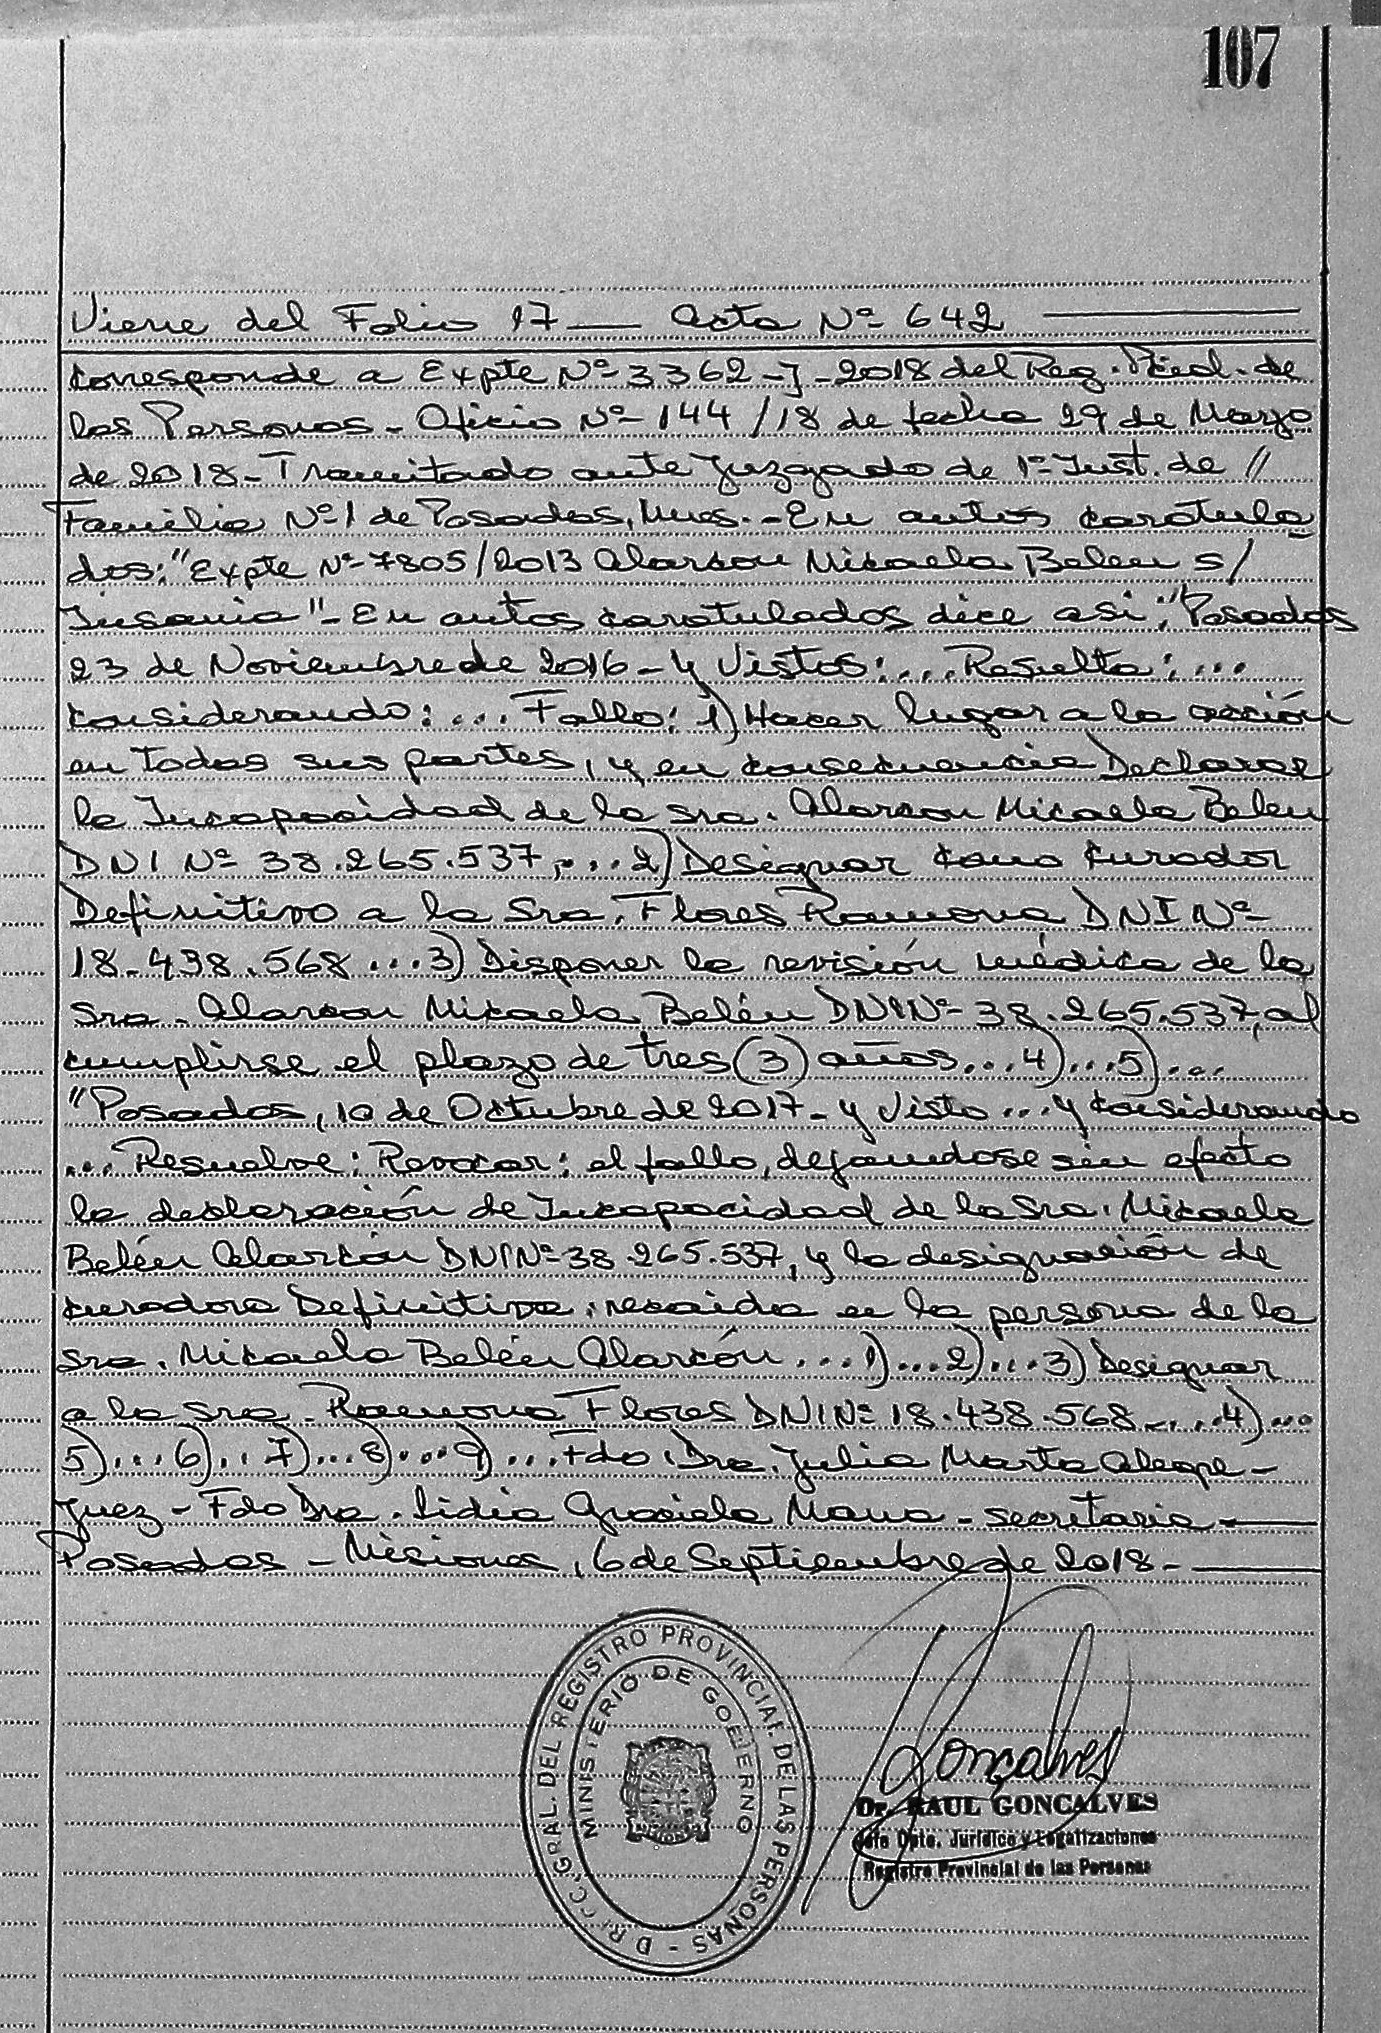 107
Viene del Folio 17 — Acta Nº 642 —
Corresponde a Expte Nº 3362-J-2018 del Reg. Pcial. de
las Personas - Oficio Nº 144/18 de fecha 29 de Marzo
de 2018 - Tramitado ante Juzgado de 1º Inst. de //
Familia Nº 1 de Posadas, Mnes. - En autos caratula
dos: "Expte Nº 7805/2013 Alarcon Micaela Belen s/
Insania" - En autos caratulados dice asi; "Posadas
23 de Noviembre de 2016 - y Vistos: ... Resulta: ...
Considerando: ... Fallo: 1) Hacer lugar a la acción
en todas sus partes, y en consecuencia Declarar
la Incapacidad de la Sra. Alarcon Micaela Belen
DNI Nº 38.265.537, ... 2) Designar como Curador
Definitivo a la Sra. Flores Ramona DNI Nº
18.438.568 ... 3) Disponer la revisión médica de la
Sra. Alarcon Micaela Belén DNI Nº 38.265.537, al
cumplirse el plazo de tres (3) años ... 4) ... 5) ...
"Posadas, 10 de Octubre de 2017 - y Visto ... y Considerando
... Resuelve: Revocar: el fallo, dejandose sin efecto
la declaración de Incapacidad de la Sra. Micaela
Belén Alarcón DNI Nº 38.265.537, y la designación de
curadora Definitiva, recaida en la persona de la
Sra. Micaela Belén Alarcón ... 1) ... 2) ... 3) Designar
a la Sra. Ramona Flores DNI Nº 18.438.568 - ... 4) ...
5) ... 6) .. 7) ... 8) ... 9) ... Fdo. Dra. Julia Marta Alegre -
Juez - Fdo Dra. Lidia Graciela Mana - secretaria —
Posadas - Misiones, 6 de Septiembre de 2018 - —
DIREC. GRAL. DEL REGISTRO PROVINCIAL DE LAS PERSONAS -
MINISTERIO DE GOBIERNO
Gonçalves
Dr. RAUL GONCALVES
Jefe Dpto. Jurídico y Legalizaciones
Registro Provincial de las Personas